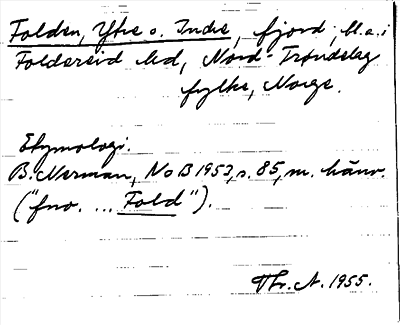 Folden, Ytre o. Indre, fjord, bl.a. i
Foldereid hd, Nord-Trøndelag
fylke, Norge.
Etymologi.
B. Nerman, NoB 1953, s. 85, m. hänv.
("fno. ... Fold").
Th. A. 1955.